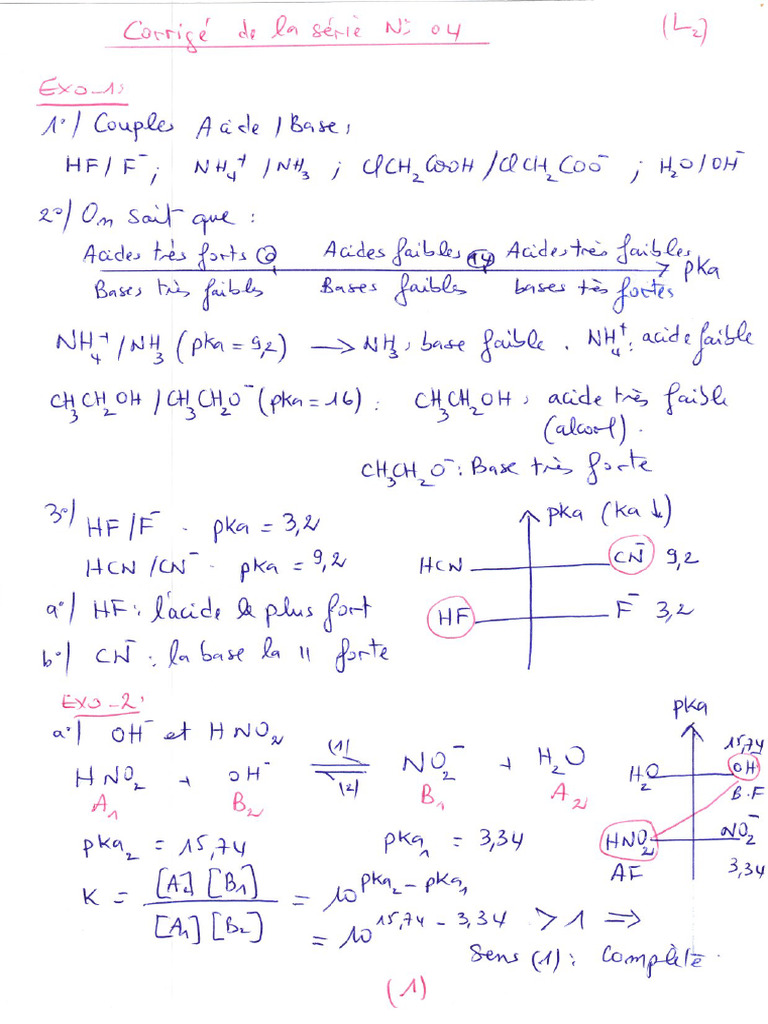 Corrigé de la série N: 04 (L₂)
Exo-1:
1°/ Couples Acide / Base:
HF/F⁻; NH₄⁺/NH₃; ClCH₂COOH/ClCH₂COO⁻; H₂O/OH⁻
2°/ On sait que:
Acides très forts 0 Acides faibles 14 Acides très faibles
pka
Bases très faibles Bases faibles bases très fortes
NH₄⁺/NH₃ (pka = 9,2) → NH₃: base faible. NH₄⁺: acide faible
CH₃CH₂OH/CH₃CH₂O⁻ (pka = 16): CH₃CH₂OH: acide très faible
(alcool).
CH₃CH₂O⁻: Base très forte
3°/ HF/F⁻. pka = 3,2
pka (ka ↓)
HCN/CN⁻. pka = 9,2
HCN CN⁻ 9,2
a°/ HF: l'acide le plus fort
HF F⁻ 3,2
b°/ CN⁻: la base la 11 forte
Exo-2:
a°/ OH⁻ et HNO₂
pka
HNO₂ + OH⁻ (1) ⇌ (2) NO₂⁻ + H₂O
A₁ B₂ B₁ A₂
H₂O 15,74 OH⁻
B.F
pka₂ = 15,74 pka₁ = 3,34
HNO₂ NO₂⁻
AF 3,34
K = [A₂][B₁] / [A₁][B₂] = 10^(pka₂ - pka₁)
= 10^(15,74 - 3,34) > 1 ⇒
Sens (1): complète.
(1)